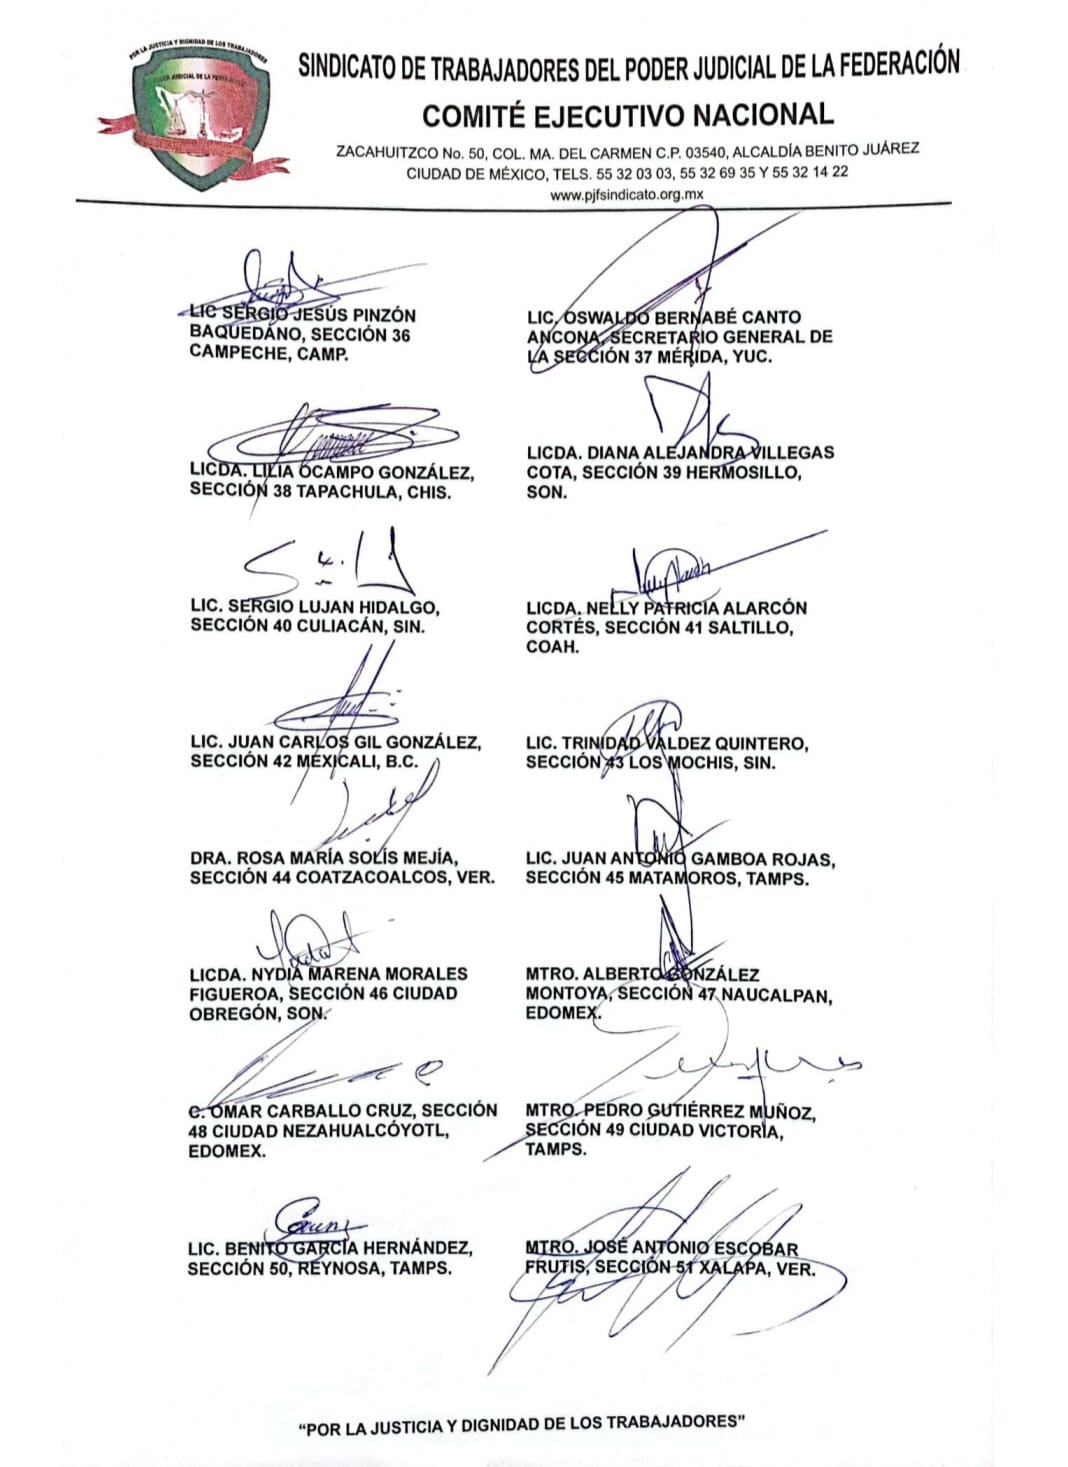 POR LA JUSTICIA Y DIGNIDAD DE LOS TRABAJADORES
PODER JUDICIAL DE LA FEDERACIÓN
SINDICATO DE TRABAJADORES DEL PODER JUDICIAL DE LA FEDERACIÓN
COMITÉ EJECUTIVO NACIONAL
ZACAHUITZCO No. 50, COL. MA. DEL CARMEN C.P. 03540, ALCALDÍA BENITO JUÁREZ
CIUDAD DE MÉXICO, TELS. 55 32 03 03, 55 32 69 35 Y 55 32 14 22
www.pjfsindicato.org.mx
LIC SERGIO JESÚS PINZÓN
BAQUEDANO, SECCIÓN 36
CAMPECHE, CAMP.
LIC. OSWALDO BERNABÉ CANTO
ANCONA, SECRETARIO GENERAL DE
LA SECCIÓN 37 MÉRIDA, YUC.
LICDA. LILIA OCAMPO GONZÁLEZ,
SECCIÓN 38 TAPACHULA, CHIS.
LICDA. DIANA ALEJANDRA VILLEGAS
COTA, SECCIÓN 39 HERMOSILLO,
SON.
LIC. SERGIO LUJAN HIDALGO,
SECCIÓN 40 CULIACÁN, SIN.
LICDA. NELLY PATRICIA ALARCÓN
CORTÉS, SECCIÓN 41 SALTILLO,
COAH.
LIC. JUAN CARLOS GIL GONZÁLEZ,
SECCIÓN 42 MEXICALI, B.C.
LIC. TRINIDAD VALDEZ QUINTERO,
SECCIÓN 43 LOS MOCHIS, SIN.
DRA. ROSA MARÍA SOLÍS MEJÍA,
SECCIÓN 44 COATZACOALCOS, VER.
LIC. JUAN ANTONIO GAMBOA ROJAS,
SECCIÓN 45 MATAMOROS, TAMPS.
LICDA. NYDIA MARENA MORALES
FIGUEROA, SECCIÓN 46 CIUDAD
OBREGÓN, SON.
MTRO. ALBERTO GONZÁLEZ
MONTOYA, SECCIÓN 47 NAUCALPAN,
EDOMEX.
C. OMAR CARBALLO CRUZ, SECCIÓN
48 CIUDAD NEZAHUALCÓYOTL,
EDOMEX.
MTRO. PEDRO GUTIÉRREZ MUÑOZ,
SECCIÓN 49 CIUDAD VICTORIA,
TAMPS.
LIC. BENITO GARCÍA HERNÁNDEZ,
SECCIÓN 50, REYNOSA, TAMPS.
MTRO. JOSÉ ANTONIO ESCOBAR
FRUTIS, SECCIÓN 51 XALAPA, VER.
“POR LA JUSTICIA Y DIGNIDAD DE LOS TRABAJADORES”